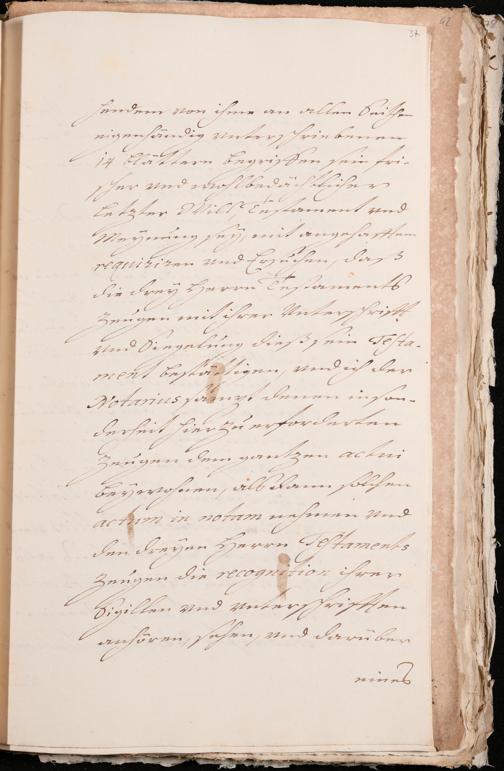 37
42
hendem von ihme an allen Seithen
eigenhändig unterschriebenen
14 blättern begriffen sein fri-
scher und wohlbedächtlicher
letzter Will, Testament und
Meynung sey, mit angehafftem
requiriren und Ersuchen, daß
die drey Herrn Testaments
Zeugen mit ihrer Unterschrifft
und Siegelung dieß sein Testa-
ment bestättigen, und ich der
Notarius sambt denen inson-
derheit hierzu erforderten
Zeugen dem gantzen actui
beywohnen, alß dann solchen
actum in notam nehmen und
den dreyen Herrn Testaments
Zeugen die recognition ihrer
Sigillen und unterschrifften
anhören, sehen, und darüber
eines